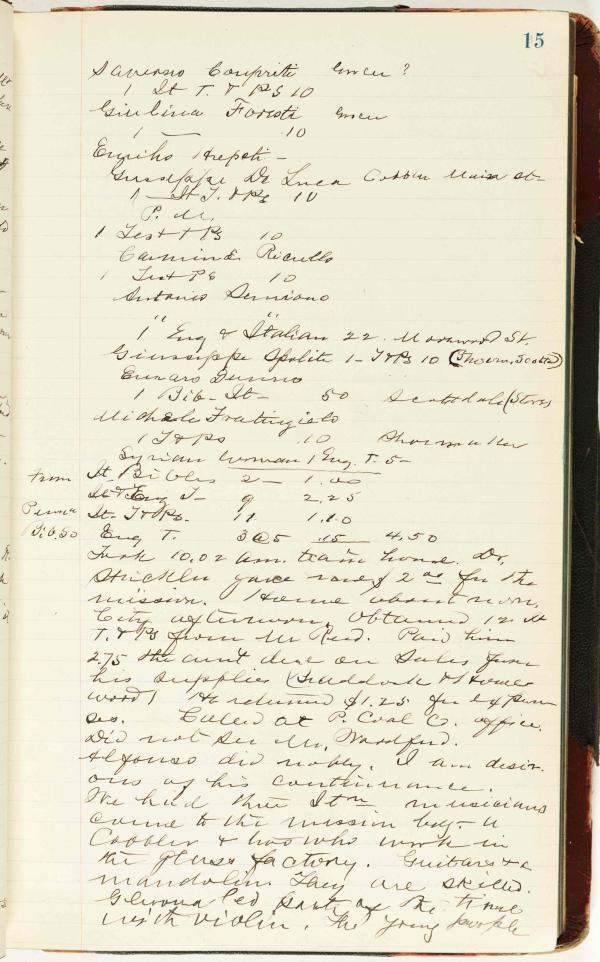 15
Saverno Grocer ?
1 It T. & Ps 10
Giulina Foresti Grocer
1 — 10
Enriko
Guiseppe De Luca Cobbler Main St-
1 — It T. & Ps 10
P. M.
1 Test & Ps 10
Carmine Ricullo
1 Test Ps 10
Antonio
1 " Eng & Italian 22 St.
Giuseppe Spolite 1 - T & Ps 10 (Shoem. Scottd)
Dunno
1 Bib- It- 50 Scottdale (Store)
Michele
1 T & Ps 10 Shoemaker
Syrian woman 1 Eng. T. 5-
from It. Bibles 2 — 1.00
It & Eng T- 9 2.25
Penna It- T & Ps. 11 1.10
Bib. So Eng T. 3 @ 5 .15 — 4.50
Took 10.02 a.m. train home. Dr.
Stickler gave me $2 00 for the
mission. Home about noon.
City afternoon. Obtained 12 It
T. & Ps from Mr Reed. Paid him
2.75 the am't due on Sales from
his supplies (Braddock & Home
wood) He returned $1.25 for expen
ses. Called at P. Coal Co. office.
Did not see Mr. Woodford.
Alfonso did nobly. I am desir-
ous of his continuance.
We had three Itn. musicians
come to the mission by- a
Cobbler & two who work in
the glass factory. Guitars & a
mandolin. They are skilled.
led part of the time
with violin. The young people